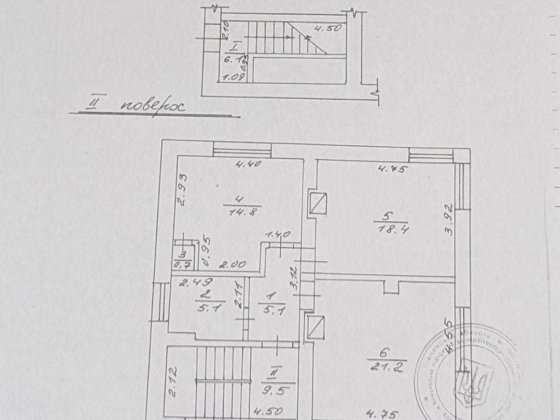 2.10
4.50
I
6.1
0.95
1.09
II поверх
4.40
4.75
2.93
4
14.8
5
18.4
3.92
1.40
3
0.7
0.95
2.00
3.12
2.49
2
5.1
2.11
1
5.1
4.55
6
21.2
2.12
II
9.5
4.50
4.75